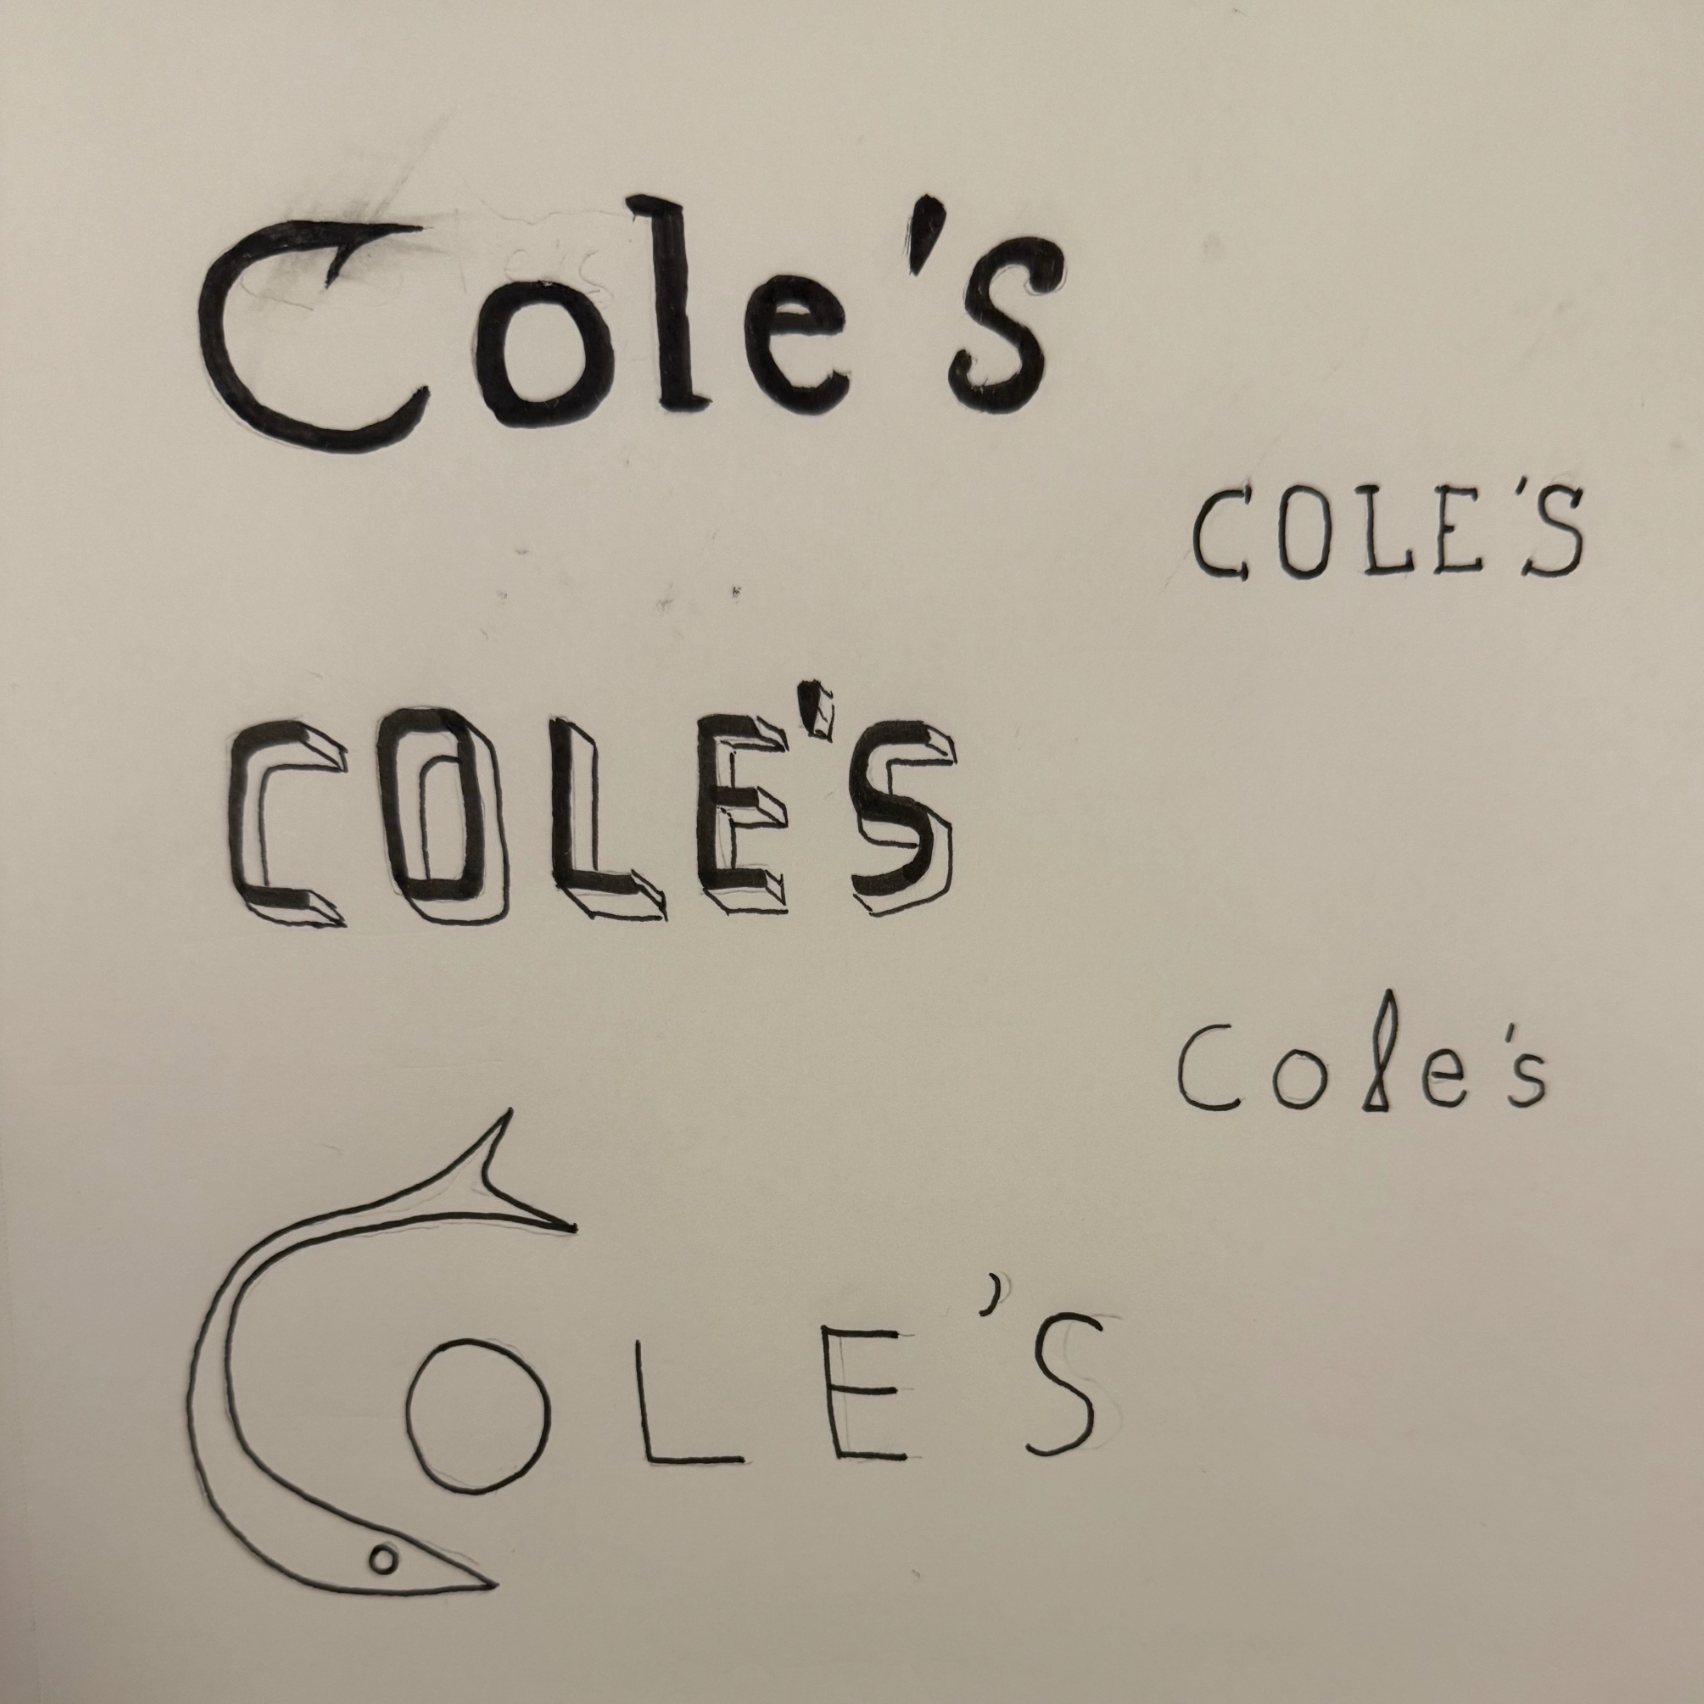 Cole's
COLE'S
COLE'S
Cole's
COLE'S